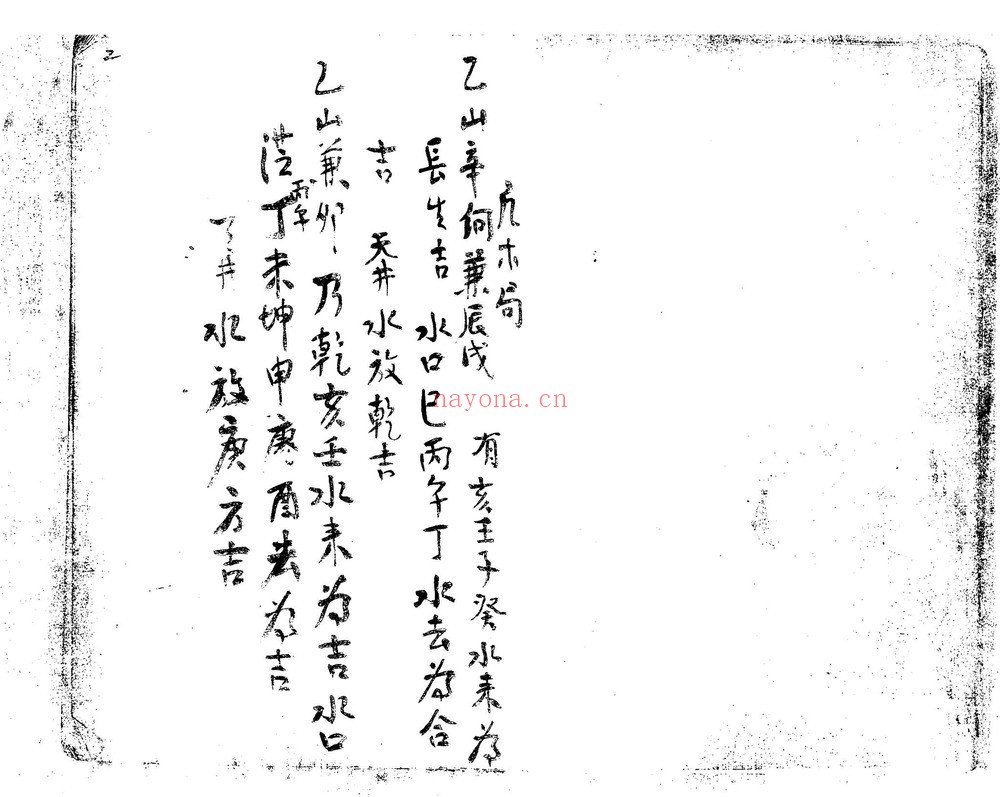 乙山辛向兼辰戌 有亥王子癸水来为
木局
長生吉 水口巳丙午丁水去为合
吉 天井水放乾吉
乙山兼卯 乃乾亥壬水来为吉水口
丁未坤申庚酉去为吉
井水放庚方吉
nayona.cn